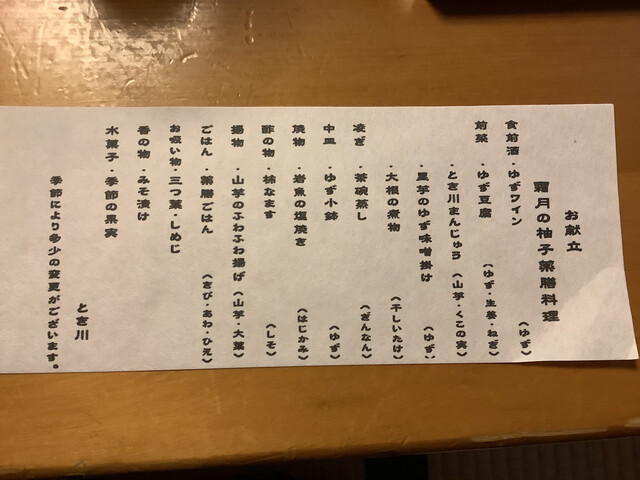 お献立
霜月の柚子薬膳料理
食前酒・ゆずワイン （ゆず）
前菜 ・ゆず豆腐 （ゆず・生姜・ねぎ）
・とき川まんじゅう （山芋・くこの実）
・里芋のゆず味噌掛け （ゆず）
・大根の煮物 （干しいたけ）
凌ぎ ・茶碗蒸し （ぎんなん）
中皿 ・ゆず小鉢 （ゆず）
焼物 ・岩魚の塩焼き （はじかみ）
酢の物・柿なます （しそ）
揚物 ・山芋のふわふわ揚げ （山芋・大葉）
ごはん ・薬膳ごはん （きび・あわ・ひえ）
お吸い物・三つ葉・しめじ
香の物・みそ漬け
水菓子・季節の果実
とき川
季節により多少の変更がございます。